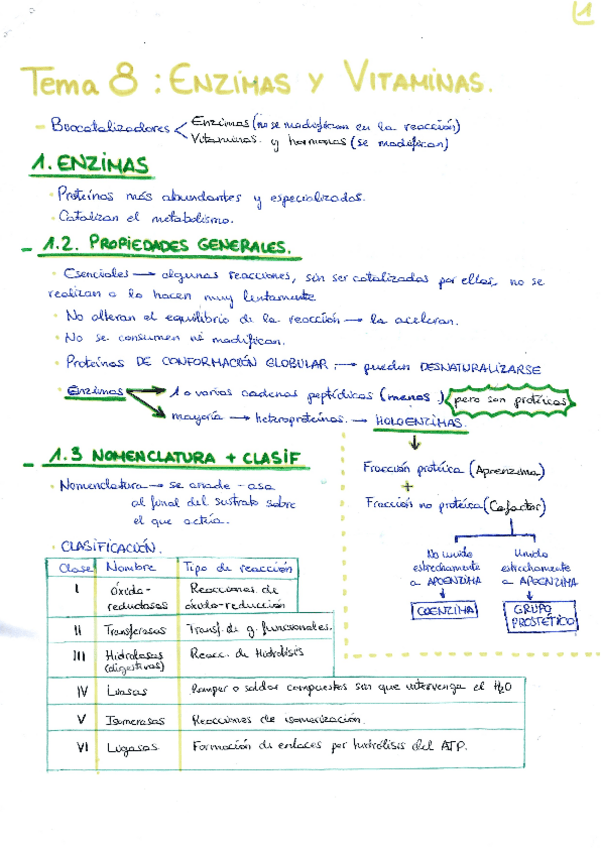 1
Tema 8: ENZIMAS Y VITAMINAS.
- Biocatalizadores < Enzimas (no se modifican en la reacción)
Vitaminas y hormonas (se modifican)
1. ENZIMAS
• Proteínas más abundantes y especializadas.
• Catalizan el metabolismo.
- 1.2. PROPIEDADES GENERALES.
• Esenciales → algunas reacciones, sin ser catalizadas por ellas, no se
realizan o lo hacen muy lentamente
• No alteran el equilibrio de la reacción → la aceleran.
• No se consumen ni modifican.
• Proteínas DE CONFORMACIÓN GLOBULAR → pueden DESNATURALIZARSE
• Enzimas → 1 o varias cadenas peptídicas (menos) pero son protéicas
mayoría → heteroproteínas → HOLOENZIMAS.
Fracción protéica (Apoenzima)
+
Fracción no protéica (Cofactor)
No unido estrechamente a APOENZIMA
COENZIMA
Unido estrechamente a APOENZIMA
GRUPO PROSTÉTICO
- 1.3 NOMENCLATURA + CLASIF
• Nomenclatura → se añade -asa
al final del sustrato sobre
el que actúa.
• CLASIFICACIÓN.
Clase Nombre Tipo de reacción
I óxido-reductasas Reacciones de óxido-reducción
II Transferasas Transf. de g. funcionales.
III Hidrolasas (digestivas) Reacc. de Hidrólisis
IV Liasas Romper o soldar compuestos sin que intervenga el H₂O
V Isomerasas Reacciones de isomerización.
VI Ligasas Formación de enlaces por hidrólisis del ATP.